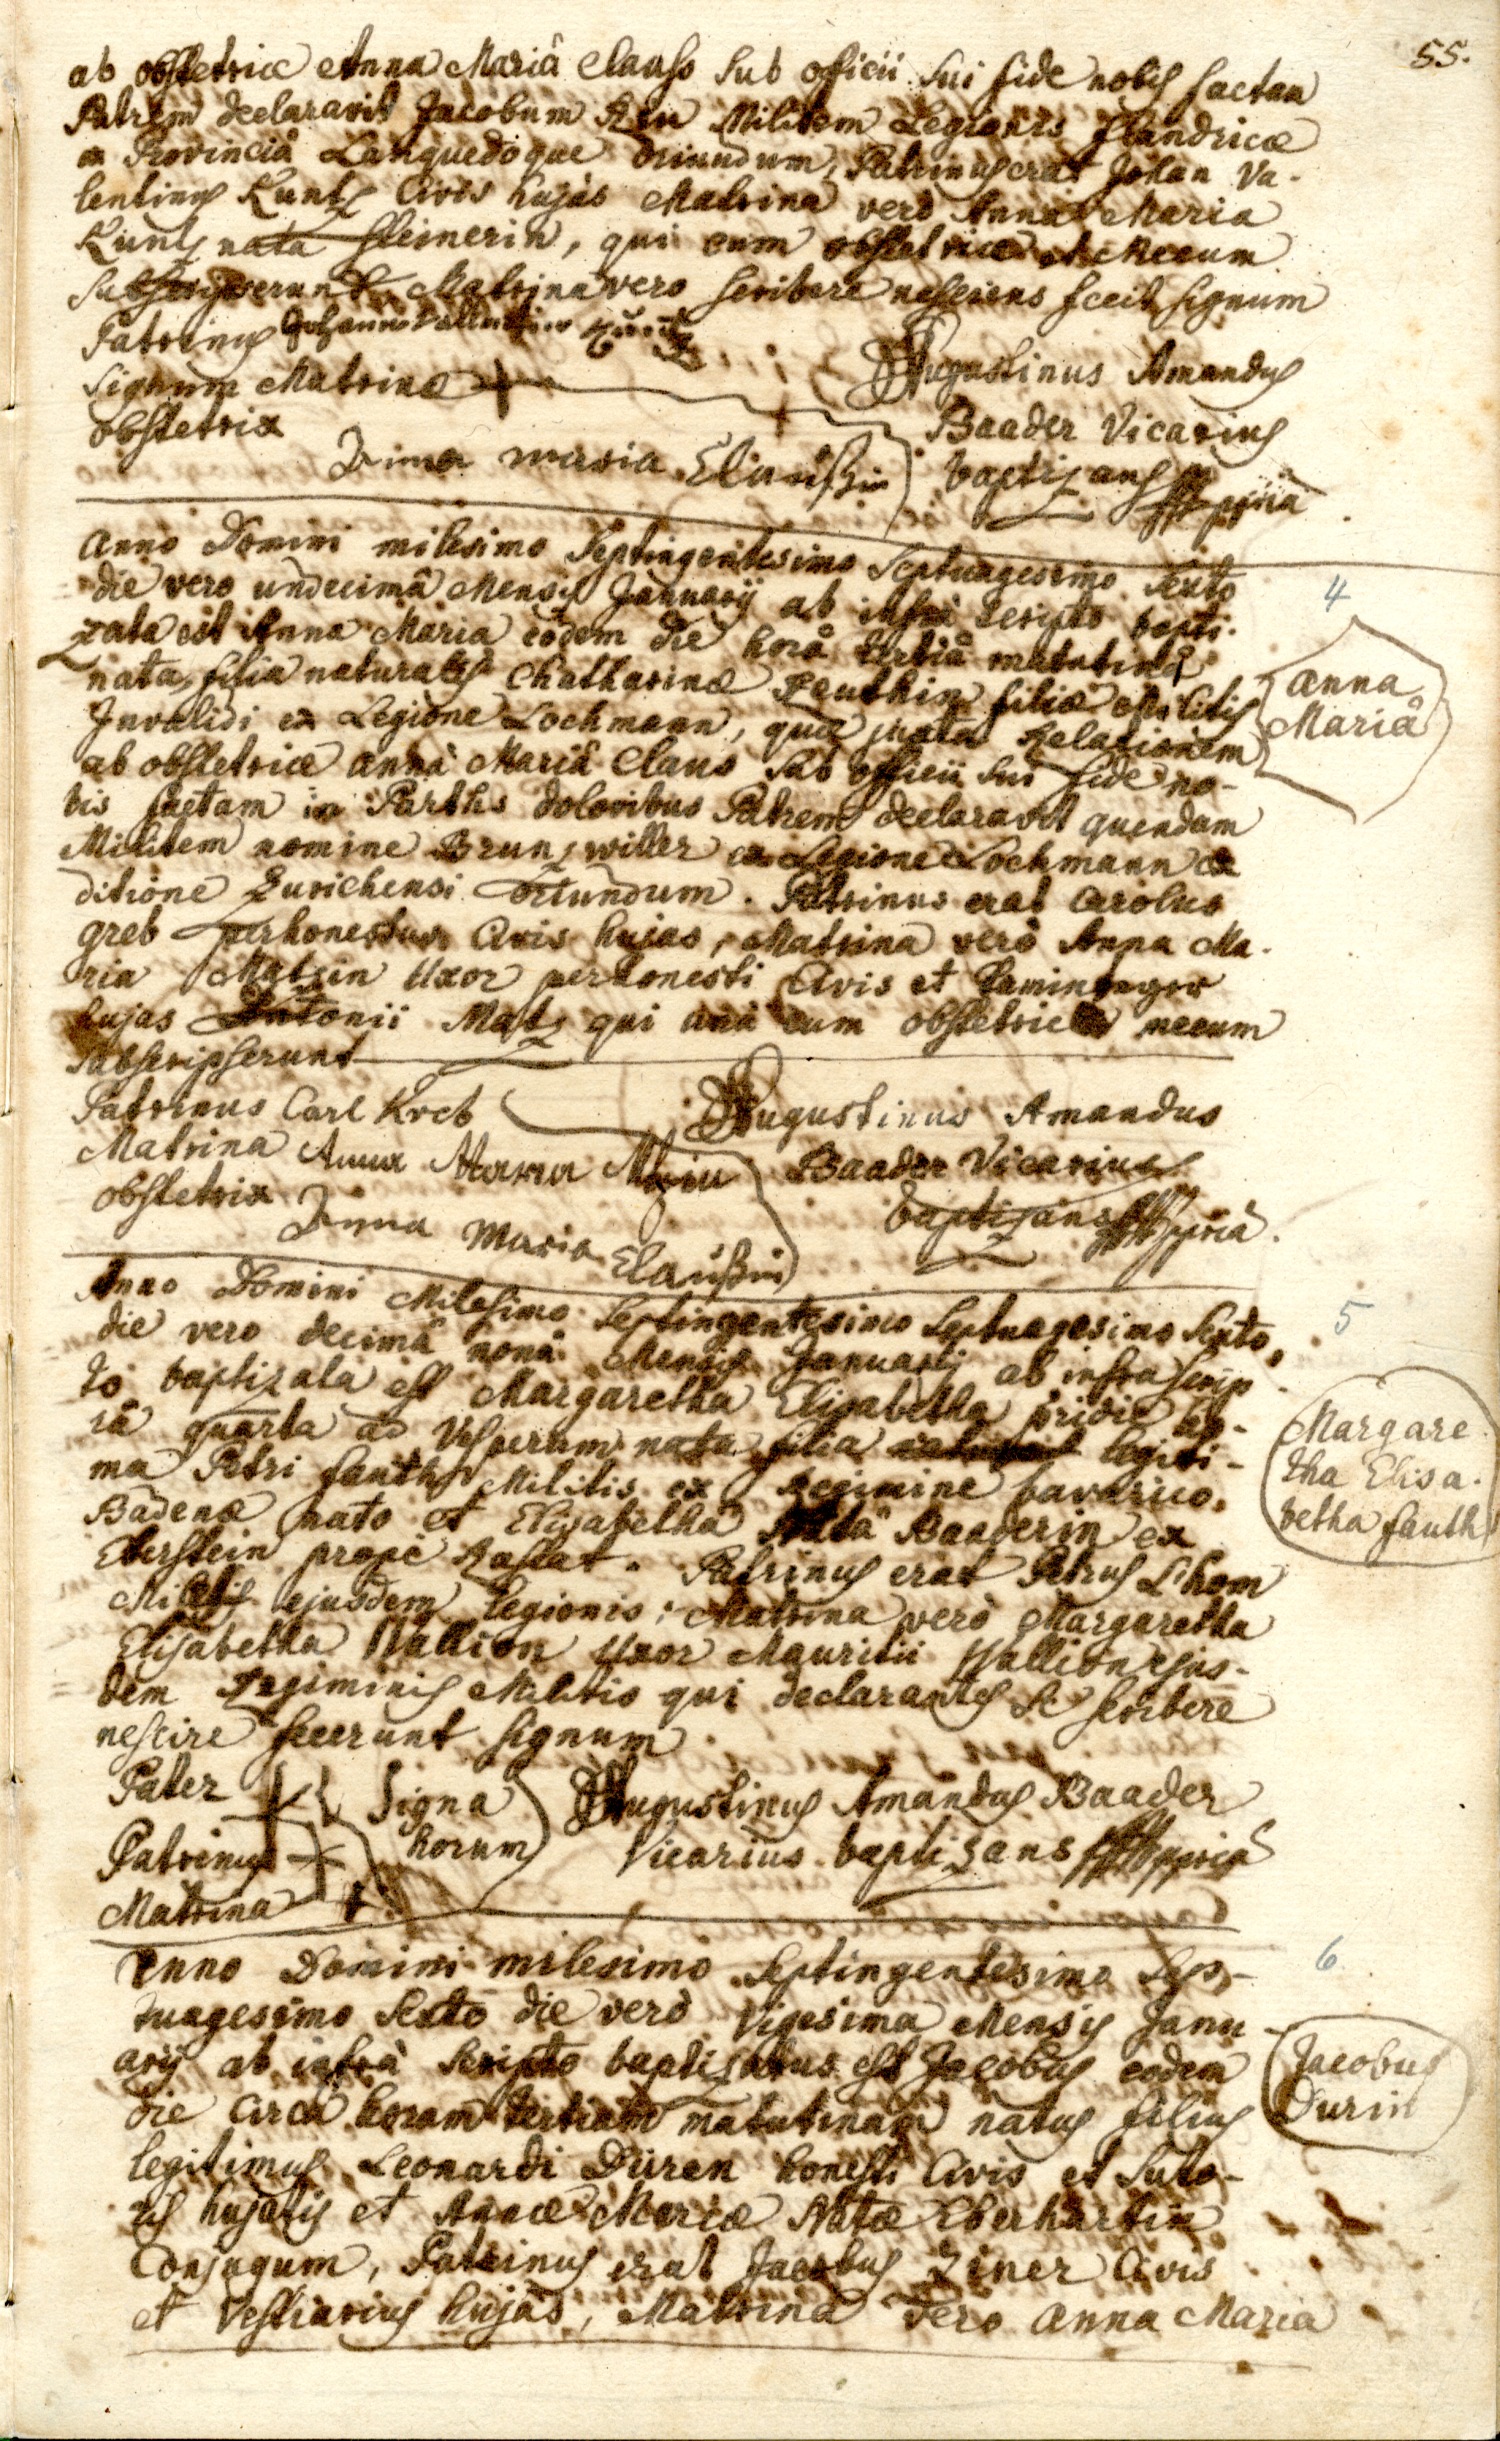 55.
ab obstetrice Anna Mariâ Clauss sub officii sui fide nobis factam
Patrem declaravit Jacobum Militem Legionis flandricæ
ex Provinciâ Languedoque oriundum, Patrinus erat Johan Va-
lentinus Kuntz Civis hujas Matrina vero Anna Maria
Kuntz nata steinerin, qui cum obstetrice et Mecum
subscripserunt Matrina vero scribere nesciens fecit signum
Patrinus
signum Matrinæ +
obstetrix
Anna maria Claussin
Augustinus Amandus
Baader Vicarius
baptizans mppriâ
Anno Domini milesimo septingentesimo septuagesimo sexto
die vero undecimâ Mensis Januarij ab infrà scripto bapti-
zata est Anna Maria eodem die horâ tertiâ matutinâ
nata, filia naturalis Chatharinæ Reuthin filiæ Militis
Invalidi ex Legione Lochmann, quæ juxta Relationem
ab obstetrice annâ Mariâ Claus sub officii sui fide no-
bis factam in Partus doloribus Patrem declaravit quendam
Militem nomine Brunzwiller ex Legione Lochmann ex
ditione Zurichensi oriundum. Patrinus erat Carolus
greb perhonestus Civis hujas, Matrina verò Anna Ma-
ria Matzin Uxor perhonesti Civis et
hujas Antonii Matz qui unà cum obstetrice mecum
subscripserunt
Patrinus Carl Kreb
Matrina Anna Maria
obstetrix
Anna Maria Claussin
Augustinus Amandus
Baader Vicarius
baptizans mppriâ.
4
Anna
Mariâ
Anno Domini Milesimo septingentesimo septuagesimo sexto,
die vero decimâ nonâ Mensis Januarij ab infra scrip-
to baptizata est Margaretha Elisabetha pridie ho-
râ quarta ad Vesperum nata filia legiti-
ma Petri fauth Militis ex Regimine bavarico,
Badenæ nato et Elisabetha Natâ Baaderin ex
Eberstein propè Rastat. Patrinus erat Petrus Lhom
Miles ejusdem legionis; Matrina verò Margaretha
Elisabetha Wallion Uxor Mauritii Wallion ejus-
dem Regiminis Militis qui declarantes se scribere
nescire fecerunt signum.
Pater +
Patrinus +
Matrina +
Signa
horum
Augustinus Amandus Baader
Vicarius baptizans mppriâ
5
Margare
tha Elisa-
betha fauth
Anno Domini milesimo septingentesimo sep-
tuagesimo sexto die verò vigesima Mensis Janu-
arij ab infrà scripto baptizatus est Jacobus eodem
die circa horam tertiam matutinam natus filius
legitimus Leonardi Düren honesti Civis et suto-
ris hujatis et Annæ Mariæ Natæ Eberhartin
Conjugum, Patrinus erat Jacobus Ziner Civis
et Vestiarius hujàs, Matrina vero Anna Maria
6
Jacobus
Durin